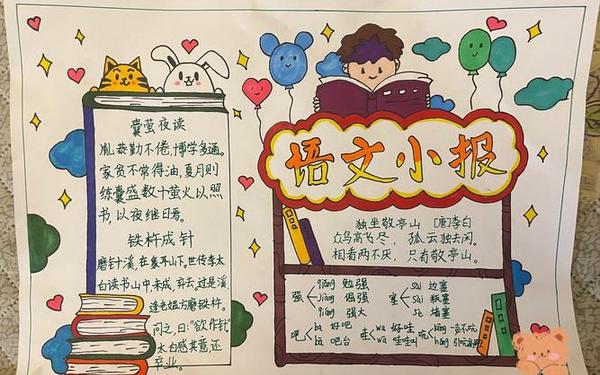 语文小报
囊萤夜读
胤恭勤不倦，博学多通。
家贫不常得油，夏月则
练囊盛数十萤火以照
书，以夜继日焉。
铁杵成针
磨针溪，在象耳山下。世传李太
白读书山中，未成，弃去。过是溪，
逢老媪方磨铁杵。
问之，曰：“欲作针”
太白感其意，还
卒业。
独坐敬亭山 [唐]李白
众鸟高飞尽，孤云独去闲。
相看两不厌，只有敬亭山。
强 qiǎng 勉强
jiàng 倔强
qiáng 强大
塞 sài 边塞
sè
sāi 堵塞
吧 ba 好吧
bā 吧台
哇 wa 好哇
wā 哇哇叫
吭